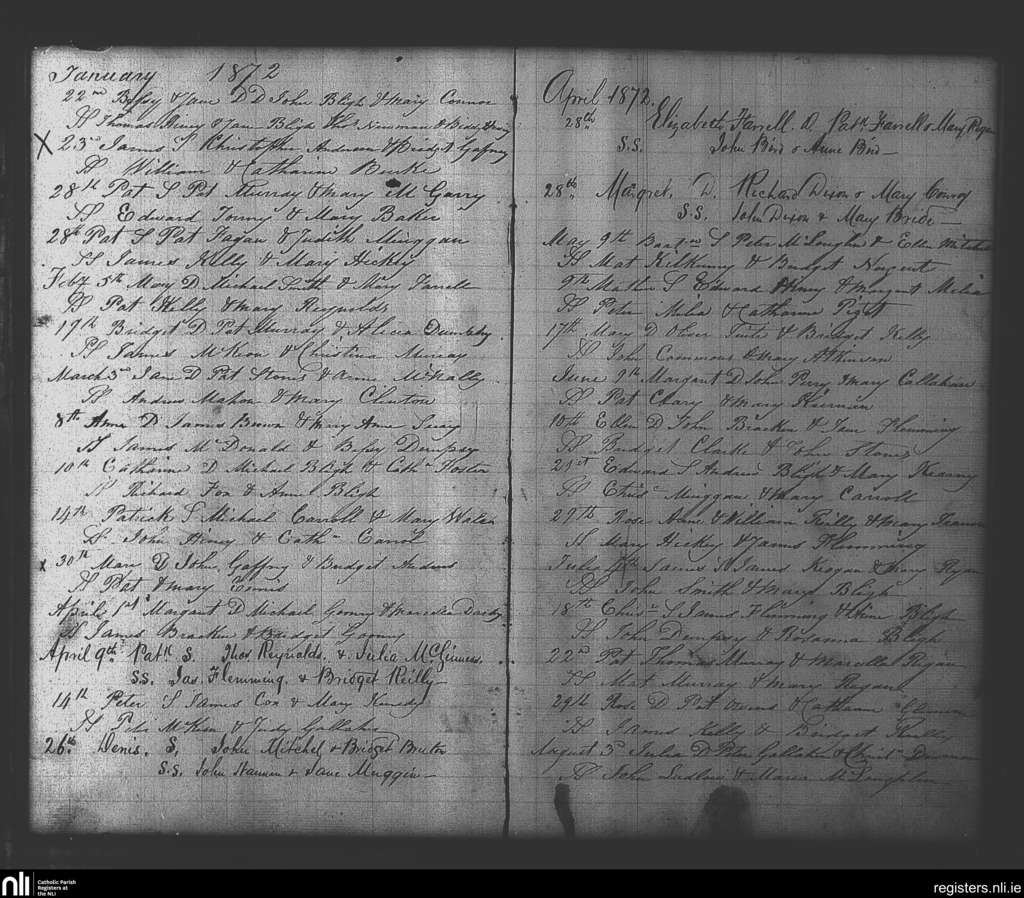 January 1872
22nd Bessy & Jane D D John Bligh & Mary Connor
SS Thomas & Jane Bligh Thos Newman & Biddy
X 23rd James S Christopher Andrews & Bridget Gaffney
SS William & Catharine Burke
28th Pat S Pat Murray & Mary Mc Garry
SS Edward & Mary Baker
28th Pat S Pat Fagan & Judith Minggan
SS James Kelly & Mary Hickey
Feby 5th Mary D Michael & Mary Farrell
SS Pat Kelly & Mary Reynolds
17th Bridget D Pat Murray & Alicia Dempsey
SS James McKeon & Christina Murray
March 3rd Jane D Pat Stones & Anne McNally
SS Andrew Mahon & Mary Clinton
8th Anne D James Brown & Mary Anne
SS James McDonald & Bessy Dempsey
10th Catharine D Michael Bligh & Cath
SS Richard Fox & Anne Bligh
14th Patrick S Michael Carroll & Mary
SS John Henry & Cathn Carroll
x 30th Mary D John Gaffny & Bridget Andrews
SS Pat & Mary
April 1st Margaret D Michael &
SS James Bracken & Bridget
April 9th Patk S. Thos Reynolds. & Julia McGinness.
SS. Jas. Flemming. & Bridget Reilly—
14th Peter S James Cox & Mary Kenedy
SS Peter McKeon & Judy Gallaher
26th Denis. S. John Mitchel & Bridget
S.S. John Hannen & Jane Muggin—
April 1872.
28th Elizabeth Farrell. D. Patk Farrell & Mary Regan
S.S. John Bird & Anne Bird—
28th Margret. D. Richard Dixon & Mary Conroy
S.S. John Dixon & Mary Bride—
May 9th S Peter McLoughlin & Ellen Mitchel
SS Mat Kilkenny & Bridget Nugent
9th Mathew S Edward Henry & Margaret Melia
SS Peter Melia & Catharine
17th Mary D Oliver Tuite & Bridget Kelly
SS John Commons & Mary Atkinson
June 9th Margaret D John & Mary Callahan
SS Pat Clary & Mary
10th Ellen D John Bracken & Jane Flemming
SS Bridget Clarke & John Stones
21st Edward S Andrew Bligh & Mary Kearny
SS Chris Minggan & Mary Carroll
29th Rose Anne William Reilly & Mary
SS Mary Hickey & James Flemming
July James S James Keegan & Mary Ryan
SS John Smith & Mary Bligh
18th Chris S James Flemming & Anne Bligh
SS John Dempsey & Rosanna Bligh
22nd Pat Thomas Murray & Marcella Regan
SS Mat Murray & Mary Regan
29th Rose D Pat Owens & Catharine
SS James Kelly & Bridget Reilly
August 3rd Julia D Peter Gallaher &
SS John Ledlow & Maria McLoughlin
nli
Catholic Parish
Registers at
the NLI
registers.nli.ie